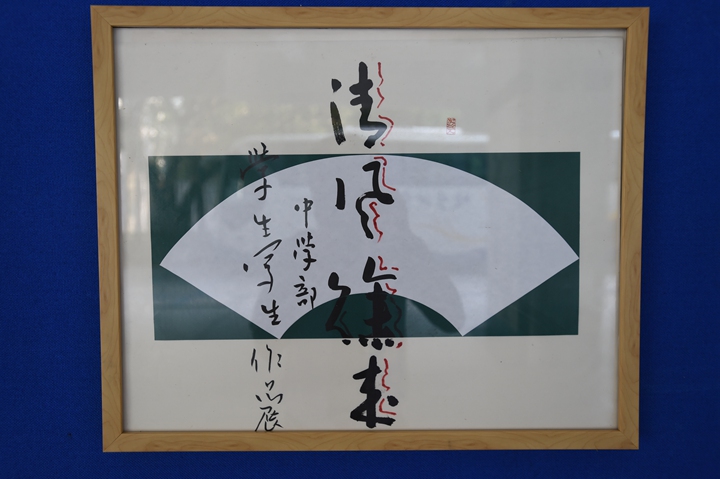 清风徐来
中学部
学生写生作品展